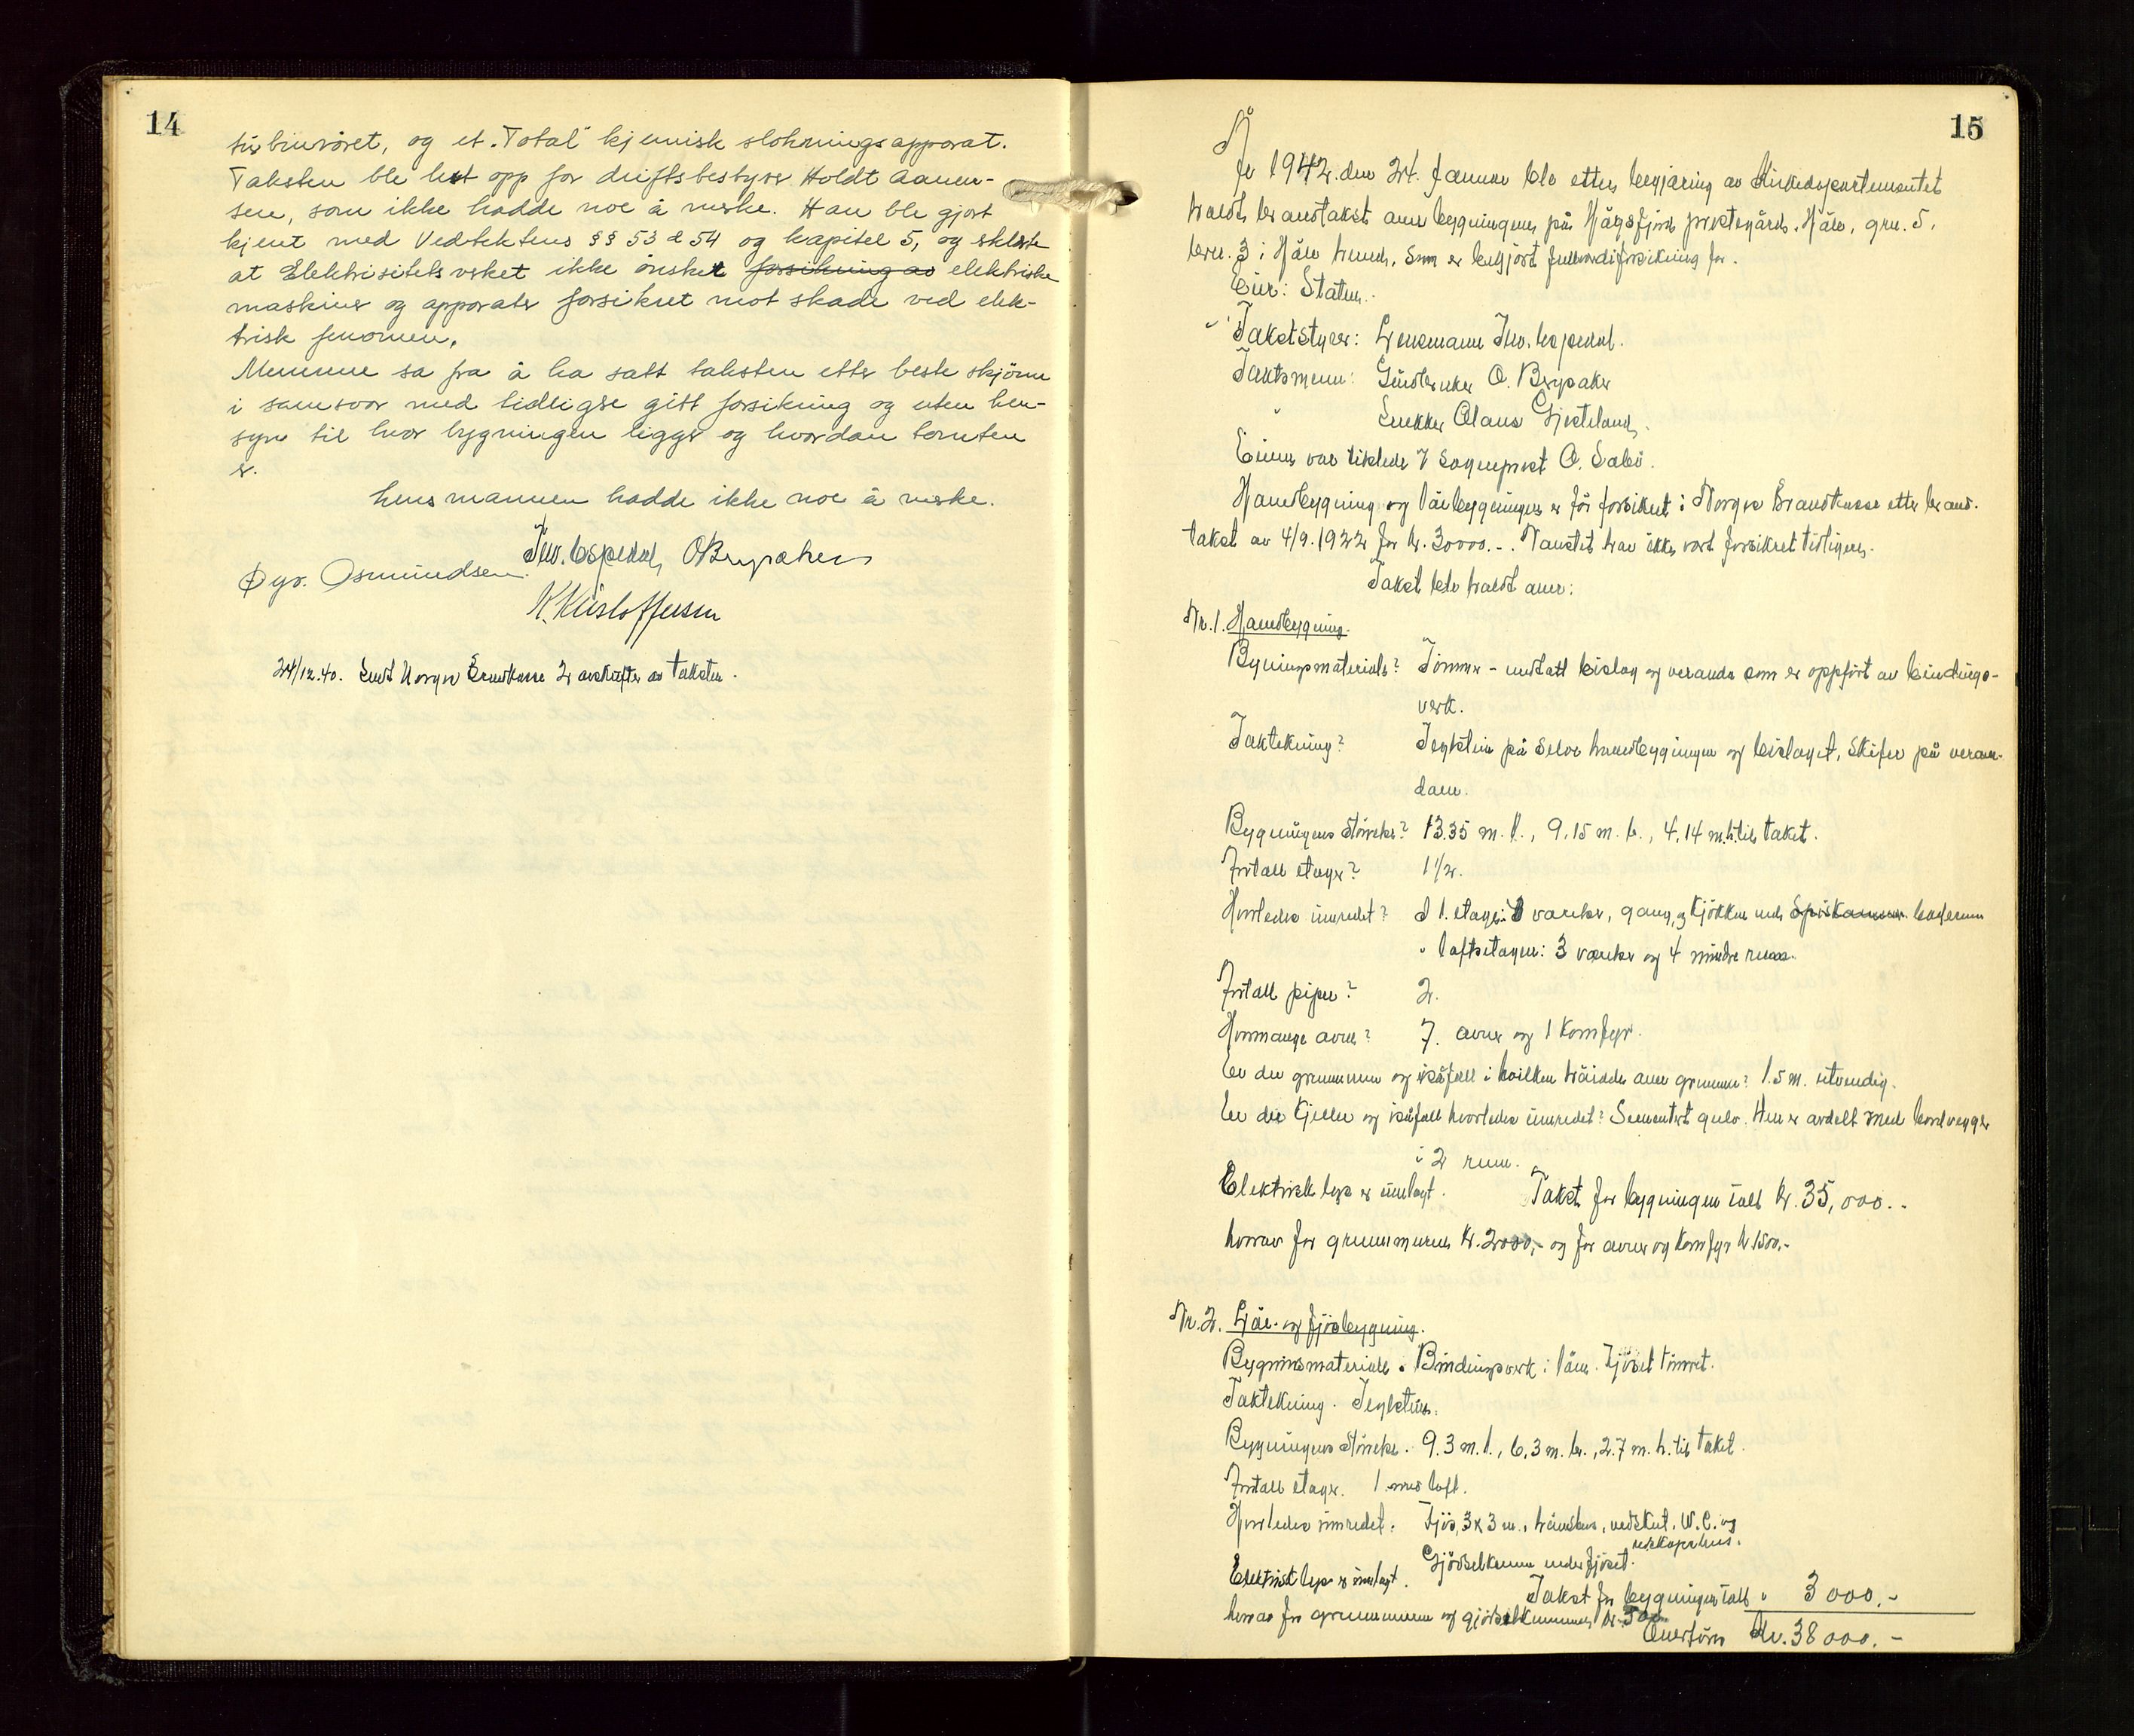 14
turbinröret, og et "Total" kjemisk slokningsapparat.
Taksten ble lest opp for driftsbestyrer Holdt Aanen-
sen, som ikke hadde noe å merke. Han ble gjort
kjent med Vedtektens §§ 53 & 54 og kapitel 5, og
at Elektrisitetsverket ikke ønsket forsikring av elektriske
maskiner og apparater forsikret mot skade ved elek-
trisk fenomen.
Mennene sa fra å ha satt taksten etter beste skjönn
i samsvar med tidligere gitt forsikring og uten hen-
syn til hvor bygningen ligger og hvordan tomten
er.
Lensmannen hadde ikke noe å merke.
Tev. Espedal, O Bergsaker
Gyr. Osmundsen.
K. Kristoffersen
24/12.40. Sendt Norges Brandkasse 2 avskrifter av taksten.
15
År 1942. den 24. Januar ble etter begjæring av Kirkedepartementet
holdt brandtakst over bygningene på Högsfjord prestegård, Håle, gnr. 5,
bnr. 3 i Håle herred, som er begjært fullverdiforsikring for.
Eier: Staten.
Takststyrer: Lensmann Tev. Espedal.
Takstmenn: Gårdbruker O. Bergsaker
" Snekker Olaus Gjesteland.
Eieren var tilstede v/ Sogneprest O. Salbö.
Hovedbygning og låvebygningen er för forsikret i Norges Brandkasse etter brand-
takst av 4/9.1922 for kr. 30000.-. Naustet har ikke vært forsikret tidligere.
Takst ble holdt over:
Nr. 1. Hovedbygning.
Bygningsmateriale? Tömmer - undtatt bislag og veranda som er oppfört av bindings-
verk.
Taktekning? Teglstein på selve hovedbygningen og bislaget, skifer på veran-
daen.
Bygningens störrelse? 13.35 m. l., 9.15 m. b., 4.14 m.h. til taket.
Antall etager? 1 1/2.
Hvorledes innredet? I 1. etage: værelser, gang, og kjökken med Spiskammer baderum
" loftsetagen: 3 værelser og 4 mindre rum.
Antall piper? 2.
Hvormange ovner? 7. ovner og 1 Komfyr.
Er der grunnmur og isåfall i hvilken höide over grunnen? 1.5 m. utvendig.
Er der kjeller og isåfall hvorledes innredet? Sementert gulv. Den er avdelt med bordvegger
i 2 rum.
Elektrisk lys er innlagt. Takst for bygningen ialt kr. 35,000.-
hvorav for grunnmuren kr. 2000,- og for ovner og komfyr kr 1500.-
Nr. 2. Låve- og fjösbygning.
Bygninsmateriale. Bindingsverk i låven. Fjöset tömret.
Taktekning. Teglstein.
Bygningens störrelse. 9.3 m. l., 6.3 m. br., 2.7 m. h. til taket.
Antall etager. 1 med loft.
Hvorledes innredet. Fjös, 3 x 3 m., hönsehus, vedskut, W.C. og
redskapshus.
Gjödselkum under fjöset.
Elektrisk lys er innlagt.
Takst for bygningen ialt " 3000.-
herav for grunnmuren og gjödselkummen kr. 500
Overföres Kr. 38000.-